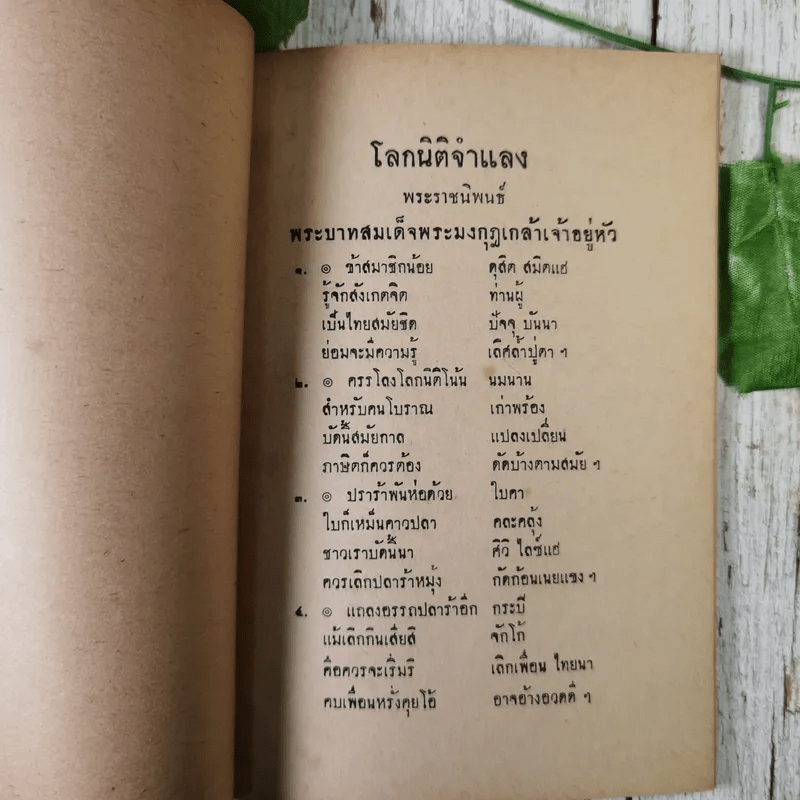 โลกนิติจำแลง
พระราชนิพนธ์
พระบาทสมเด็จพระมงกุฎเกล้าเจ้าอยู่หัว
๑. ๏ ข้าสมาชิกน้อย ดุสิต สมิตแฮ
รู้จักสังเกตจิต ท่านผู้
เป็นไทยสมัยชิด ปัจจุ บันนา
ย่อมจะมีความรู้ เลิศล้ำปู่ตา ฯ
๒. ๏ ครรโลงโลกนิติโน้น นมนาน
สำหรับคนโบราณ เก่าพร้อง
บัดนี้สมัยกาล แปลงเปลี่ยน
ภาษิตก็ควรต้อง ดัดบ้างตามสมัย ฯ
๓. ๏ ปราร้าพันห่อด้วย ใบคา
ใบก็เหม็นคาวปลา คละคลุ้ง
ชาวเราบัดนี้นา ศิวิ ไลซ์แฮ
ควรเลิกปลาร้าหมุ้ง กัดก้อนเนยแขง ฯ
๔. ๏ แถลงอรรถปลาร้าอีก กระบี
แม้เลิกกินเสียสิ จักโก้
คือควรจะเริ่มริ เลิกเพื่อน ไทยนา
คบเพื่อนหรั่งคุยโอ้ อาจอ้างอวดดี ฯ